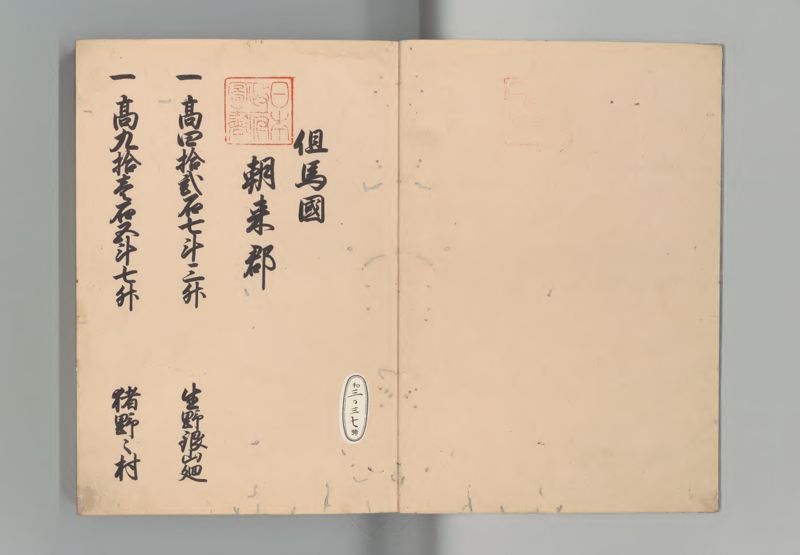 但馬國
朝来郡
日本
政府
圖書
一 高四拾貳石七斗三升 生野銀山廻
一 高九拾壱石五斗七升 猪野々村
和
三〇三七
號